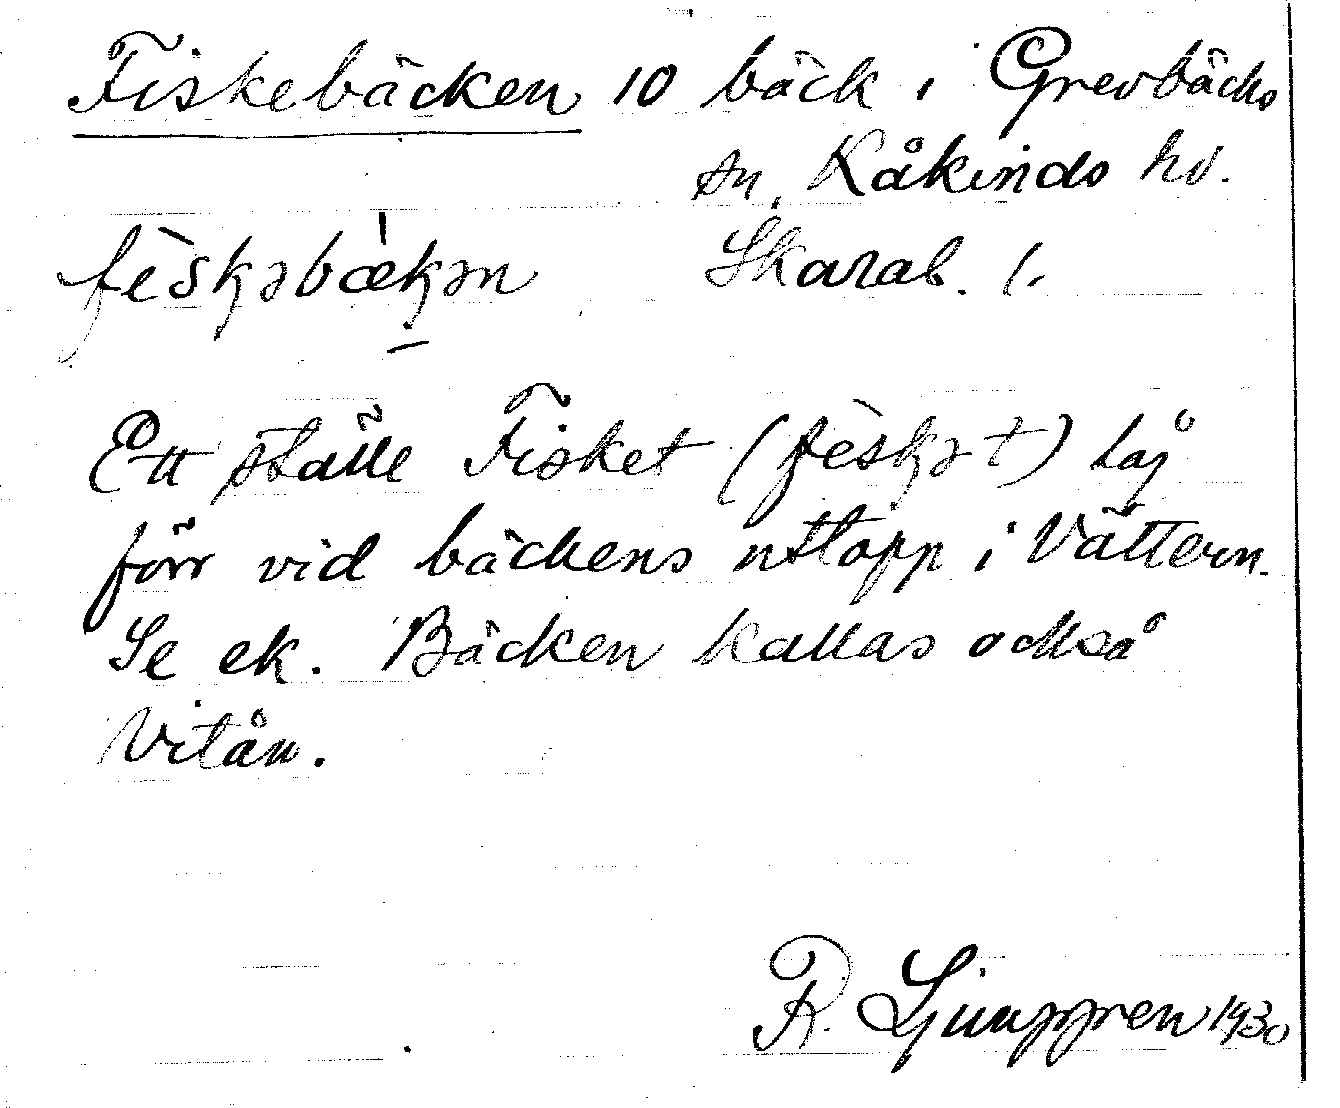 Fiskebäcken 10 bäck i Grevbäcks
sn, Kåkinds hd.
fèskəbækən Skarab. l.
Ett ställe Fisket (fèskət) låg
förr vid bäckens utlopp i Vättern.
Se ek. Bäcken kallas också
Vitån.
R. Ljunggren 1930